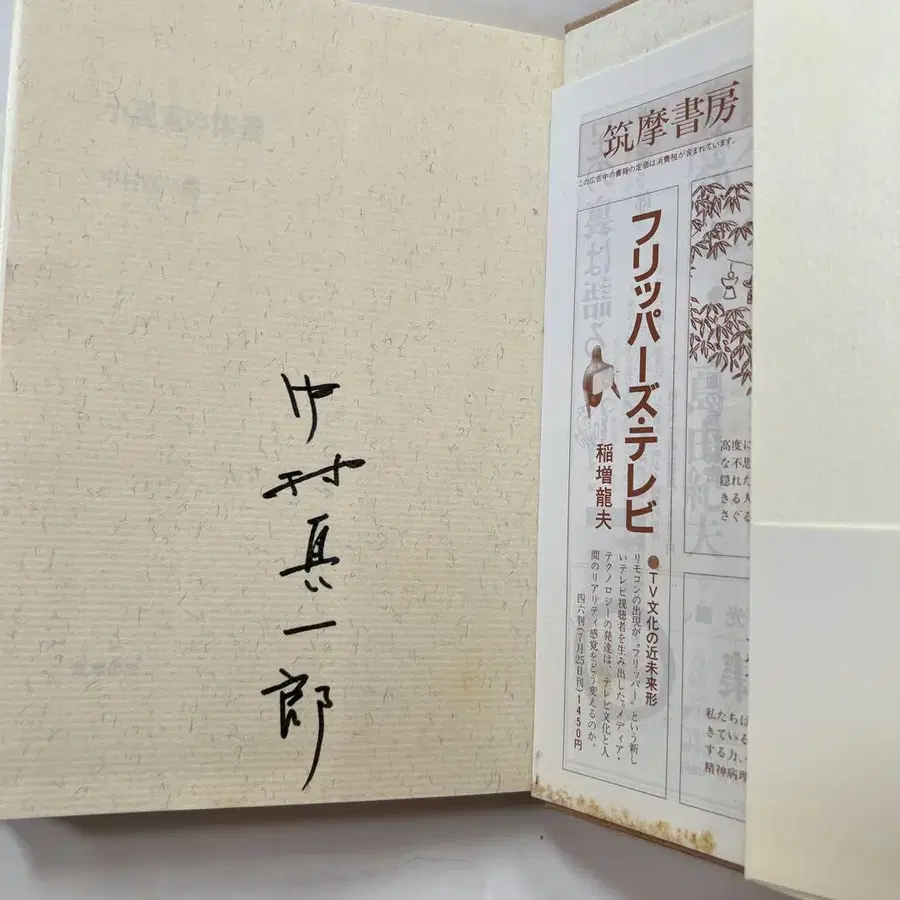 中村真一郎
筑摩書房
この広告中の書籍の定価は消費税が含まれています。
フリッパーズ・テレビ
稲増龍夫
●TV文化の近未来形
リモコンの出現が、“フリッパー”という新し
いテレビ視聴者を生み出した。メディア・
テクノロジーの発達は、テレビ文化と人
間のリアリティ感覚をどう変えるのか。
四六判(7月25日刊)1450円
高度に
な不思
隠れた
きる人
さぐる
私たちは
きている
する力、
精神病理